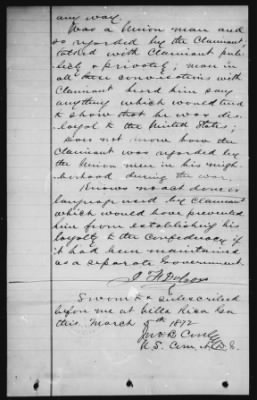 any way.
Was a Union man and
so regarded by the Claimant,
talked with Claimant pub-
licly & privately; never in
all these conversations with
Claimant heard him say
anything which would tend
to show that he was dis-
loyal to the United States;
Does not know how the
Claimant was regarded by
the Union men in his neigh-
borhood during the war.
Knows no act done or
language used by Claimant
which would have prevented
him from establishing his
loyalty to the Confederacy if
it had been maintained
as a separate Government.
Sworn to & subscribed
before me at Villa Rica Ga
this March 5th 1872
Jno B
U.S. Com.